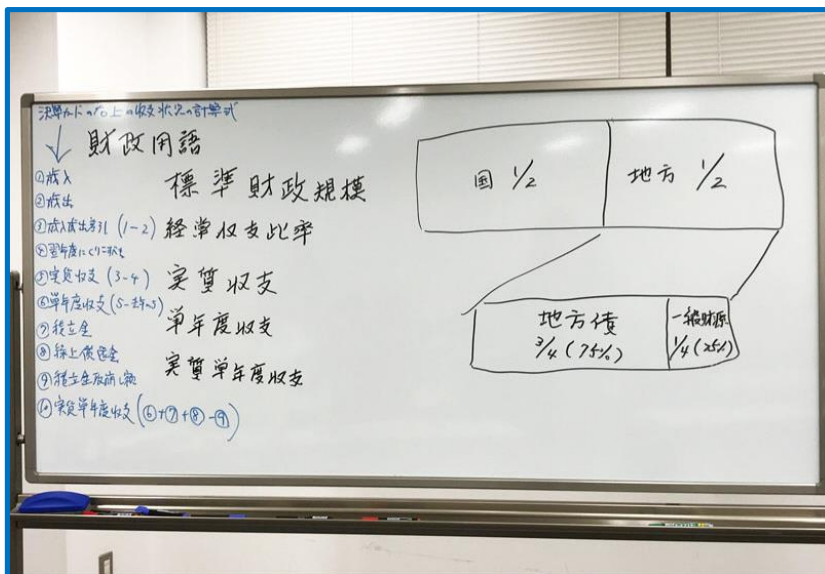 決算カードの右上の収支状況の計算式
財政用語
①歳入
②歳出
③歳入歳出差引(1-2)
④翌年度にくりこし
⑤実質収支(3-4)
⑥単年度収支(5-去年の5)
⑦積立金
⑧繰上償還金
⑨積立金取崩し額
⑩実質単年度収支(⑥+⑦+⑧-⑨)
標準財政規模
経常収支比率
実質収支
単年度収支
実質単年度収支
国 1/2
地方 1/2
地方債
3/4(75%)
一般財源
1/4(25%)